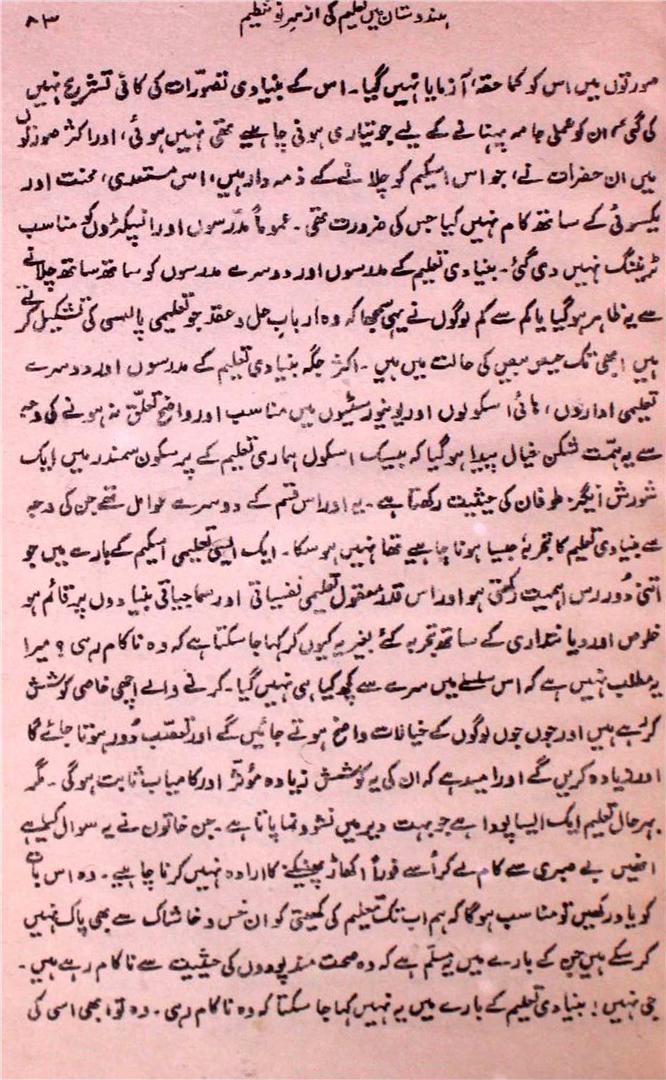 ہندوستان میں تعلیم کی از سر نو تنظیم
۸۳
صورتوں میں اس کو کما حقہٗ آزمایا نہیں گیا۔ اس کے بنیادی تصوّرات کی کافی تشریح نہیں
کی گئی، ان کو عملی جامہ پہنانے کے لیے جو تیاری ہونی چاہیے تھی نہیں ہوئی، اور اکثر صورتوں
میں ان حضرات نے، جو اس اسکیم کو چلانے کے ذمہ دار ہیں، اس مستعدی، محنت اور
یکسوئی کے ساتھ کام نہیں کیا جس کی ضرورت تھی۔ عموماً مدرّسوں اور انسپکٹروں کو مناسب
ٹریننگ نہیں دی گئی۔ بنیادی تعلیم کے مدرسوں اور دوسرے مدرسوں کو ساتھ ساتھ چلانے
سے یہ ظاہر ہوگیا یا کم سے کم لوگوں نے یہی سمجھا کہ وہ ارباب حل و عقد جو تعلیمی پالیسی کی تشکیل کرتے
ہیں ابھی تک حیص بیص کی حالت میں ہیں۔ اکثر جگہ بنیادی تعلیم کے مدرسوں اور دوسرے
تعلیمی اداروں، ہائی اسکولوں اور یونیورسٹیوں میں مناسب اور واضح تعلّق نہ ہونے کی وجہ
سے یہ ہمّت شکن خیال پیدا ہوگیا کہ بیسک اسکول ہماری تعلیم کے پرسکون سمندر میں ایک
شورش انگیز طوفان کی حیثیت رکھتا ہے۔ یہ اور اس قسم کے دوسرے عوامل تھے جن کی وجہ
سے بنیادی تعلیم کا تجربہ جیسا ہونا چاہیے تھا نہیں ہوسکا۔ ایک ایسی تعلیمی اسکیم کے بارے میں جو
اتنی دُور رس اہمیت رکھتی ہو اور اس قدر معقول تعلیمی نفسیاتی اور سماجیاتی بنیادوں پر قائم ہو
خلوص اور دیانتداری کے ساتھ تجربہ کئے بغیر یہ کیوں کر کہا جاسکتا ہے کہ وہ ناکام رہی؟ میرا
یہ مطلب نہیں ہے کہ اس سلسلے میں سرے سے کچھ کیا ہی نہیں گیا۔ کرنے والے اچھی خاصی کوشش
کر رہے ہیں اور جوں جوں لوگوں کے خیالات واضح ہوتے جائیں گے اور تعصّب دُور ہوتا جائے گا
اور زیادہ کریں گے اور امید ہے کہ ان کی یہ کوشش زیادہ مؤثّر اور کامیاب ثابت ہوگی۔ مگر
بہرحال تعلیم ایک ایسا پودا ہے جو بہت دیر میں نشوونما پاتا ہے۔ جن خاتون نے یہ سوال کیا ہے
انھیں بے صبری سے کام لے کر اُسے فوراً اکھاڑ پھینکنے کا ارادہ نہیں کرنا چاہیے۔ وہ اس بات
کو یاد رکھیں تو مناسب ہوگا کہ ہم اب تک تعلیم کی کھیتی کو ان خس و خاشاک سے بھی پاک نہیں
کرسکے ہیں جن کے بارے میں یہ مسلّم ہے کہ وہ صحت مند پودوں کی حیثیت سے ناکام رہے ہیں۔
جی نہیں! بنیادی تعلیم کے بارے میں یہ نہیں کہا جاسکتا کہ وہ ناکام رہی۔ وہ تو ابھی اسی کی